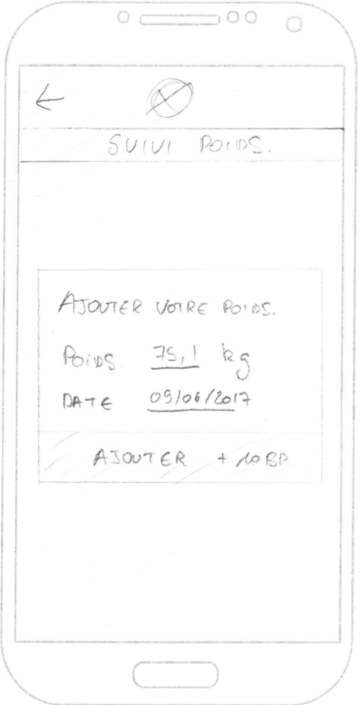 SUIVI POIDS.
AJOUTER VOTRE POIDS.
POIDS 75,1 kg
DATE 09/06/2017
AJOUTER + 10 BP